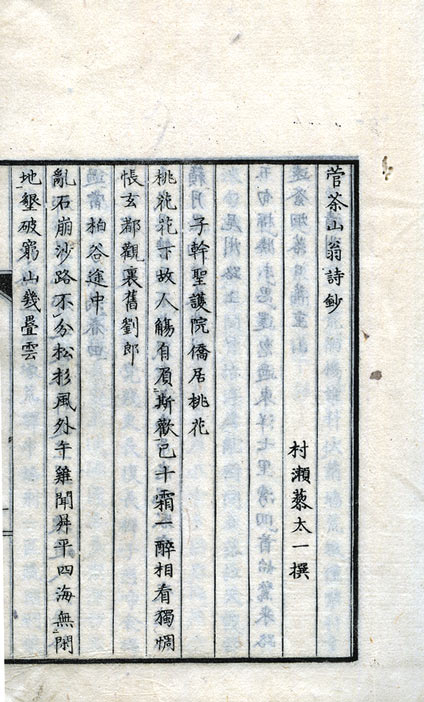 菅茶山翁詩鈔
村瀬藜太一撰
子幹聖護院僑居桃花
桃花花下故人觴自斯歡已十霜一醉相看獨惆
悵玄都觀裏舊劉郎
柏谷途中
亂石崩沙路不分松杉風外午雞聞昇平四海無閑
地墾破窮山幾疊雲